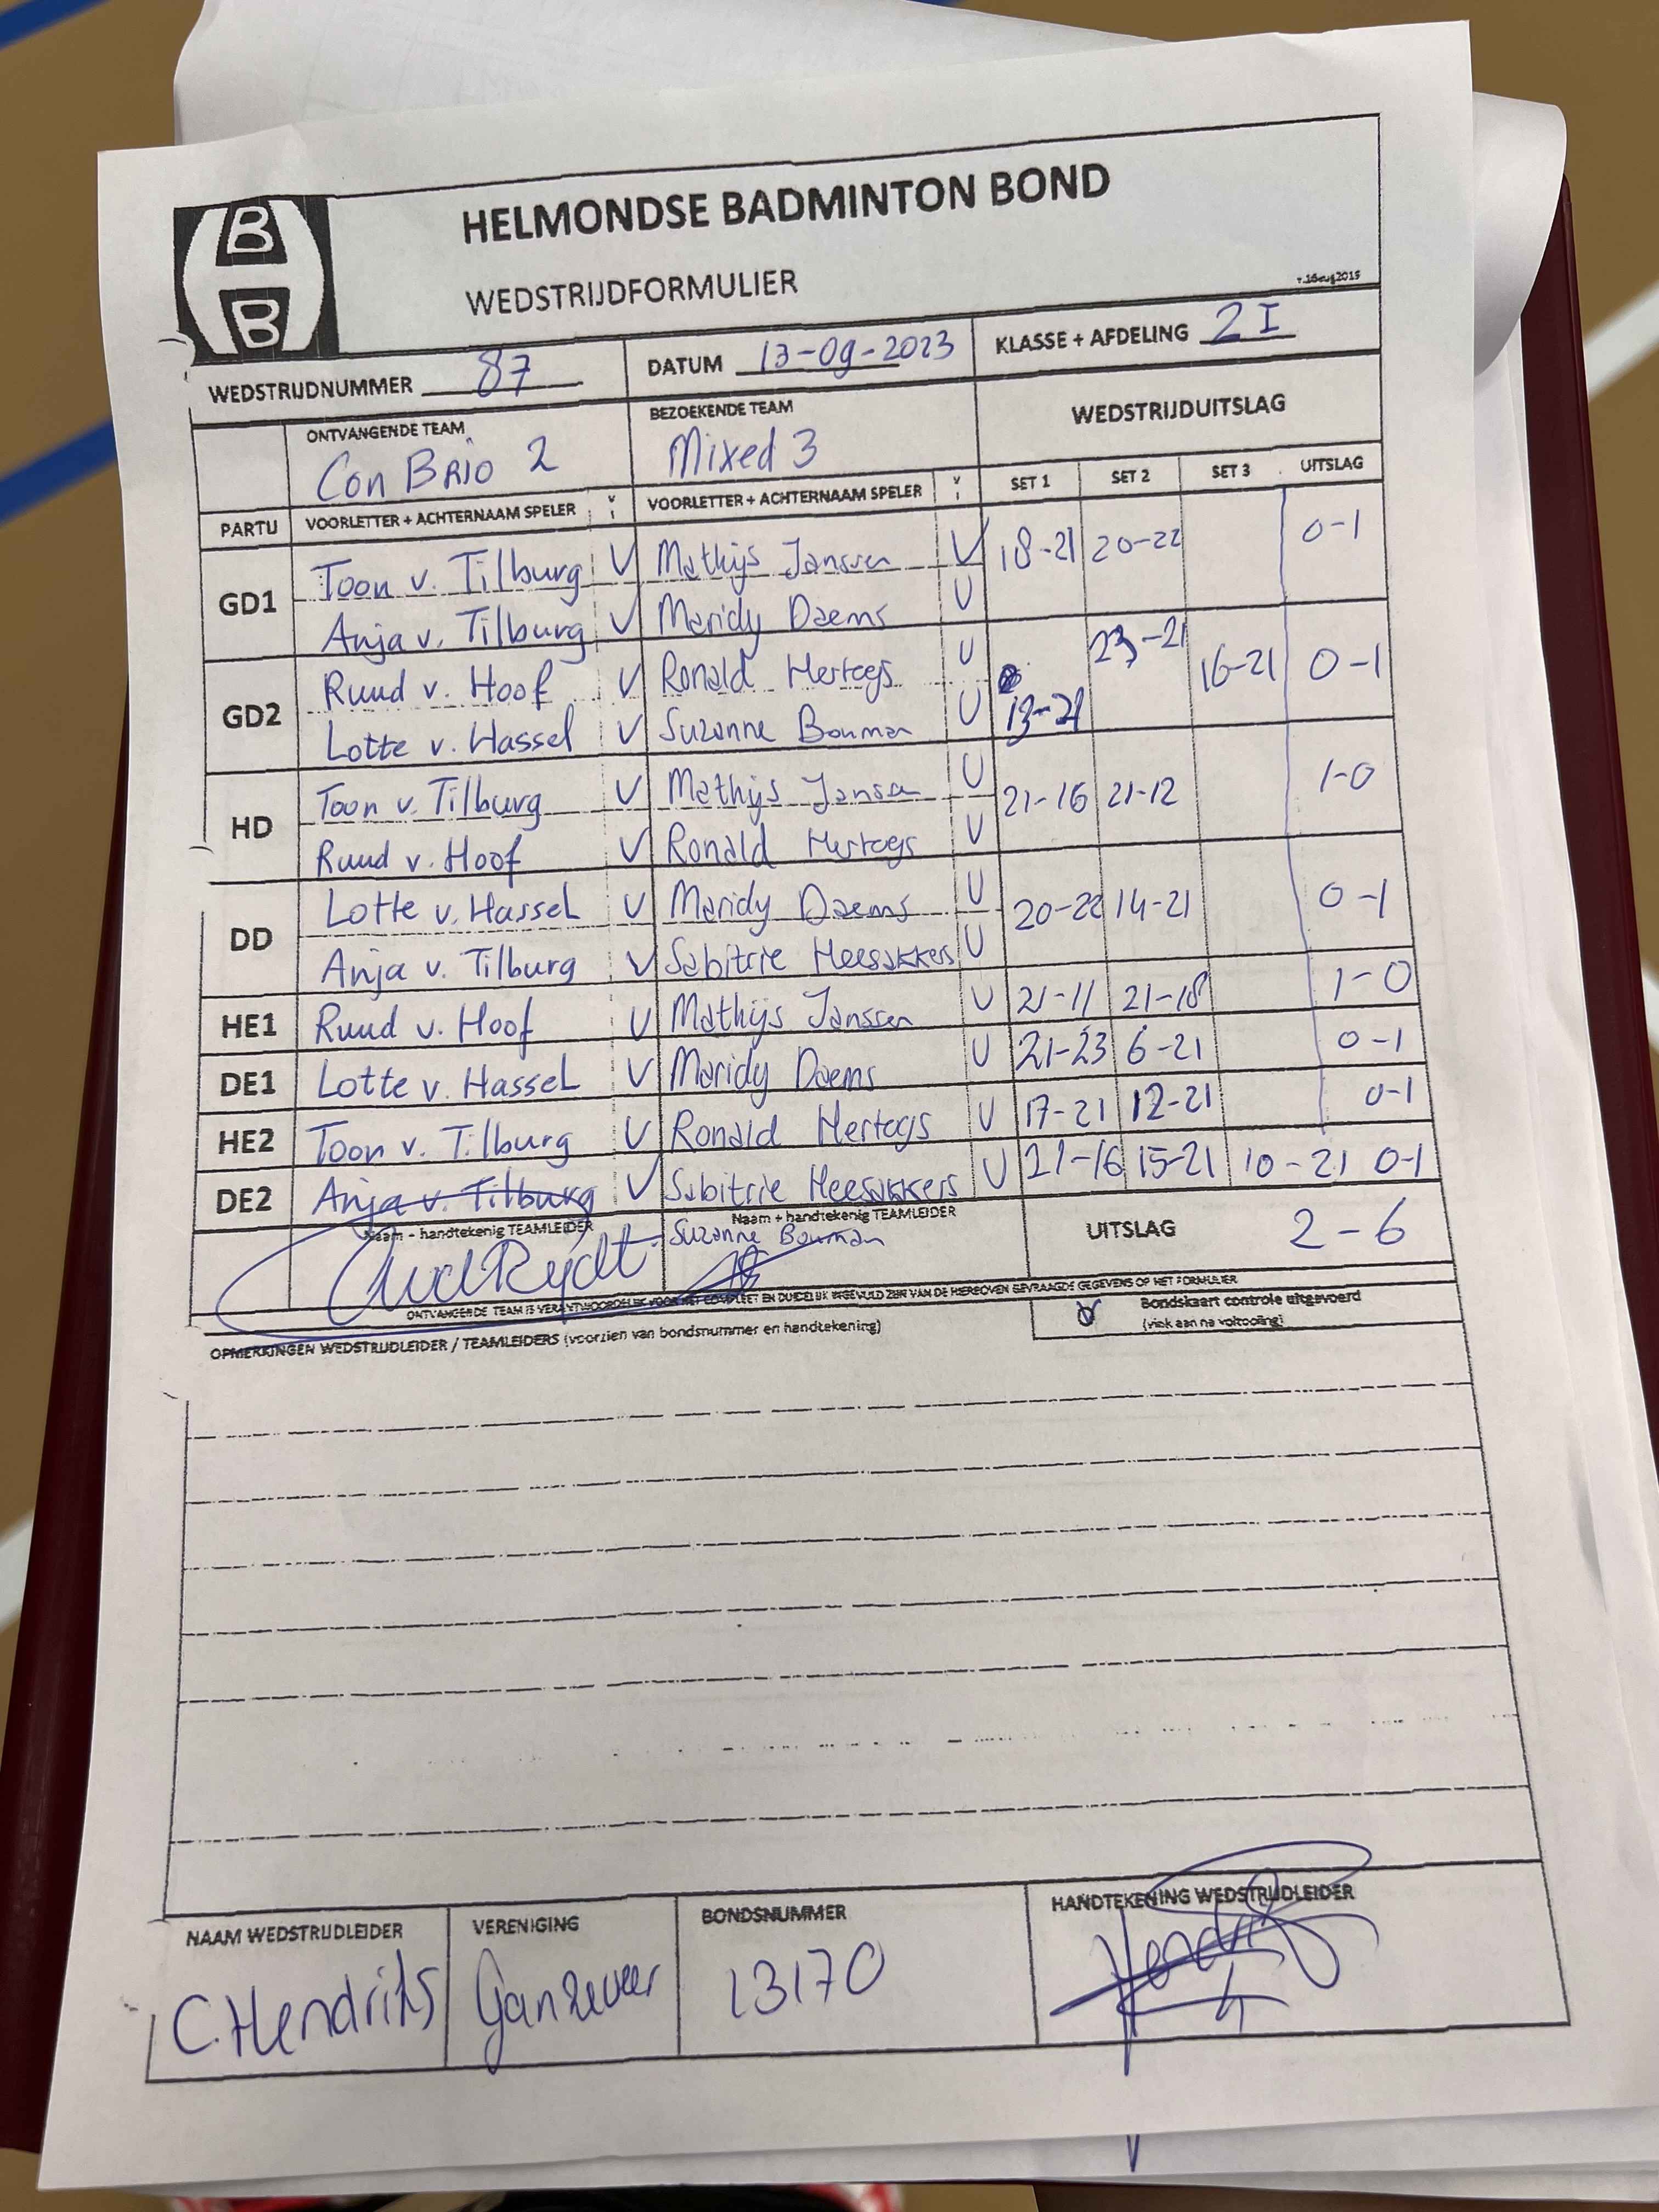 B
B
HELMONDSE BADMINTON BOND
WEDSTRIJDFORMULIER
v.16aug2015
WEDSTRIJDNUMMER 87 DATUM 13-09-2023 KLASSE + AFDELING 2 I
ONTVANGENDE TEAM BEZOEKENDE TEAM WEDSTRIJDUITSLAG
Con BRIO 2 Mixed 3
PARTIJ VOORLETTER + ACHTERNAAM SPELER V VOORLETTER + ACHTERNAAM SPELER V SET 1 SET 2 SET 3 UITSLAG
GD1 Toon v. Tilburg V Mathijs Janssen V 18-21 20-22 0-1
Anja v. Tilburg V Maridy Daems V
GD2 Ruud v. Hoof V Ronald Hertogs V 23-21 16-21 0-1
Lotte v. Hassel V Suzanne Bouman V 13-21
HD Toon v. Tilburg V Mathijs Jansen V 21-16 21-12 1-0
Ruud v. Hoof V Ronald Hertogs V
DD Lotte v. Hassel V Maridy Daems V 20-22 14-21 0-1
Anja v. Tilburg V Sabitrie Heesakkers V
HE1 Ruud v. Hoof V Mathijs Janssen V 21-11 21-18 1-0
DE1 Lotte v. Hassel V Maridy Daems V 21-23 6-21 0-1
HE2 Toon v. Tilburg V Ronald Hertogs V 17-21 12-21 0-1
DE2 Anja v. Tilburg V Sabitrie Heesakkers V 21-16 15-21 10-21 0-1
Naam + handtekenig TEAMLEIDER Naam + handtekenig TEAMLEIDER UITSLAG 2-6
Suzanne Bouman
ONTVANGENDE TEAM IS VERANTWOORDELIJK VOOR HET COMPLEET EN DUIDELIJK INGEVULD ZIJN VAN DE HIERBOVEN GEVRAAGDE GEGEVENS OP HET FORMULIER
OPMERKINGEN WEDSTRIJDLEIDER / TEAMLEIDERS (voorzien van bondsnummer en handtekening)
Bondskaart controle uitgevoerd
(vink aan na voltooiing)
NAAM WEDSTRIJDLEIDER VERENIGING BONDSNUMMER HANDTEKENING WEDSTRIJDLEIDER
C. Hendriks Ganzeveer 13170